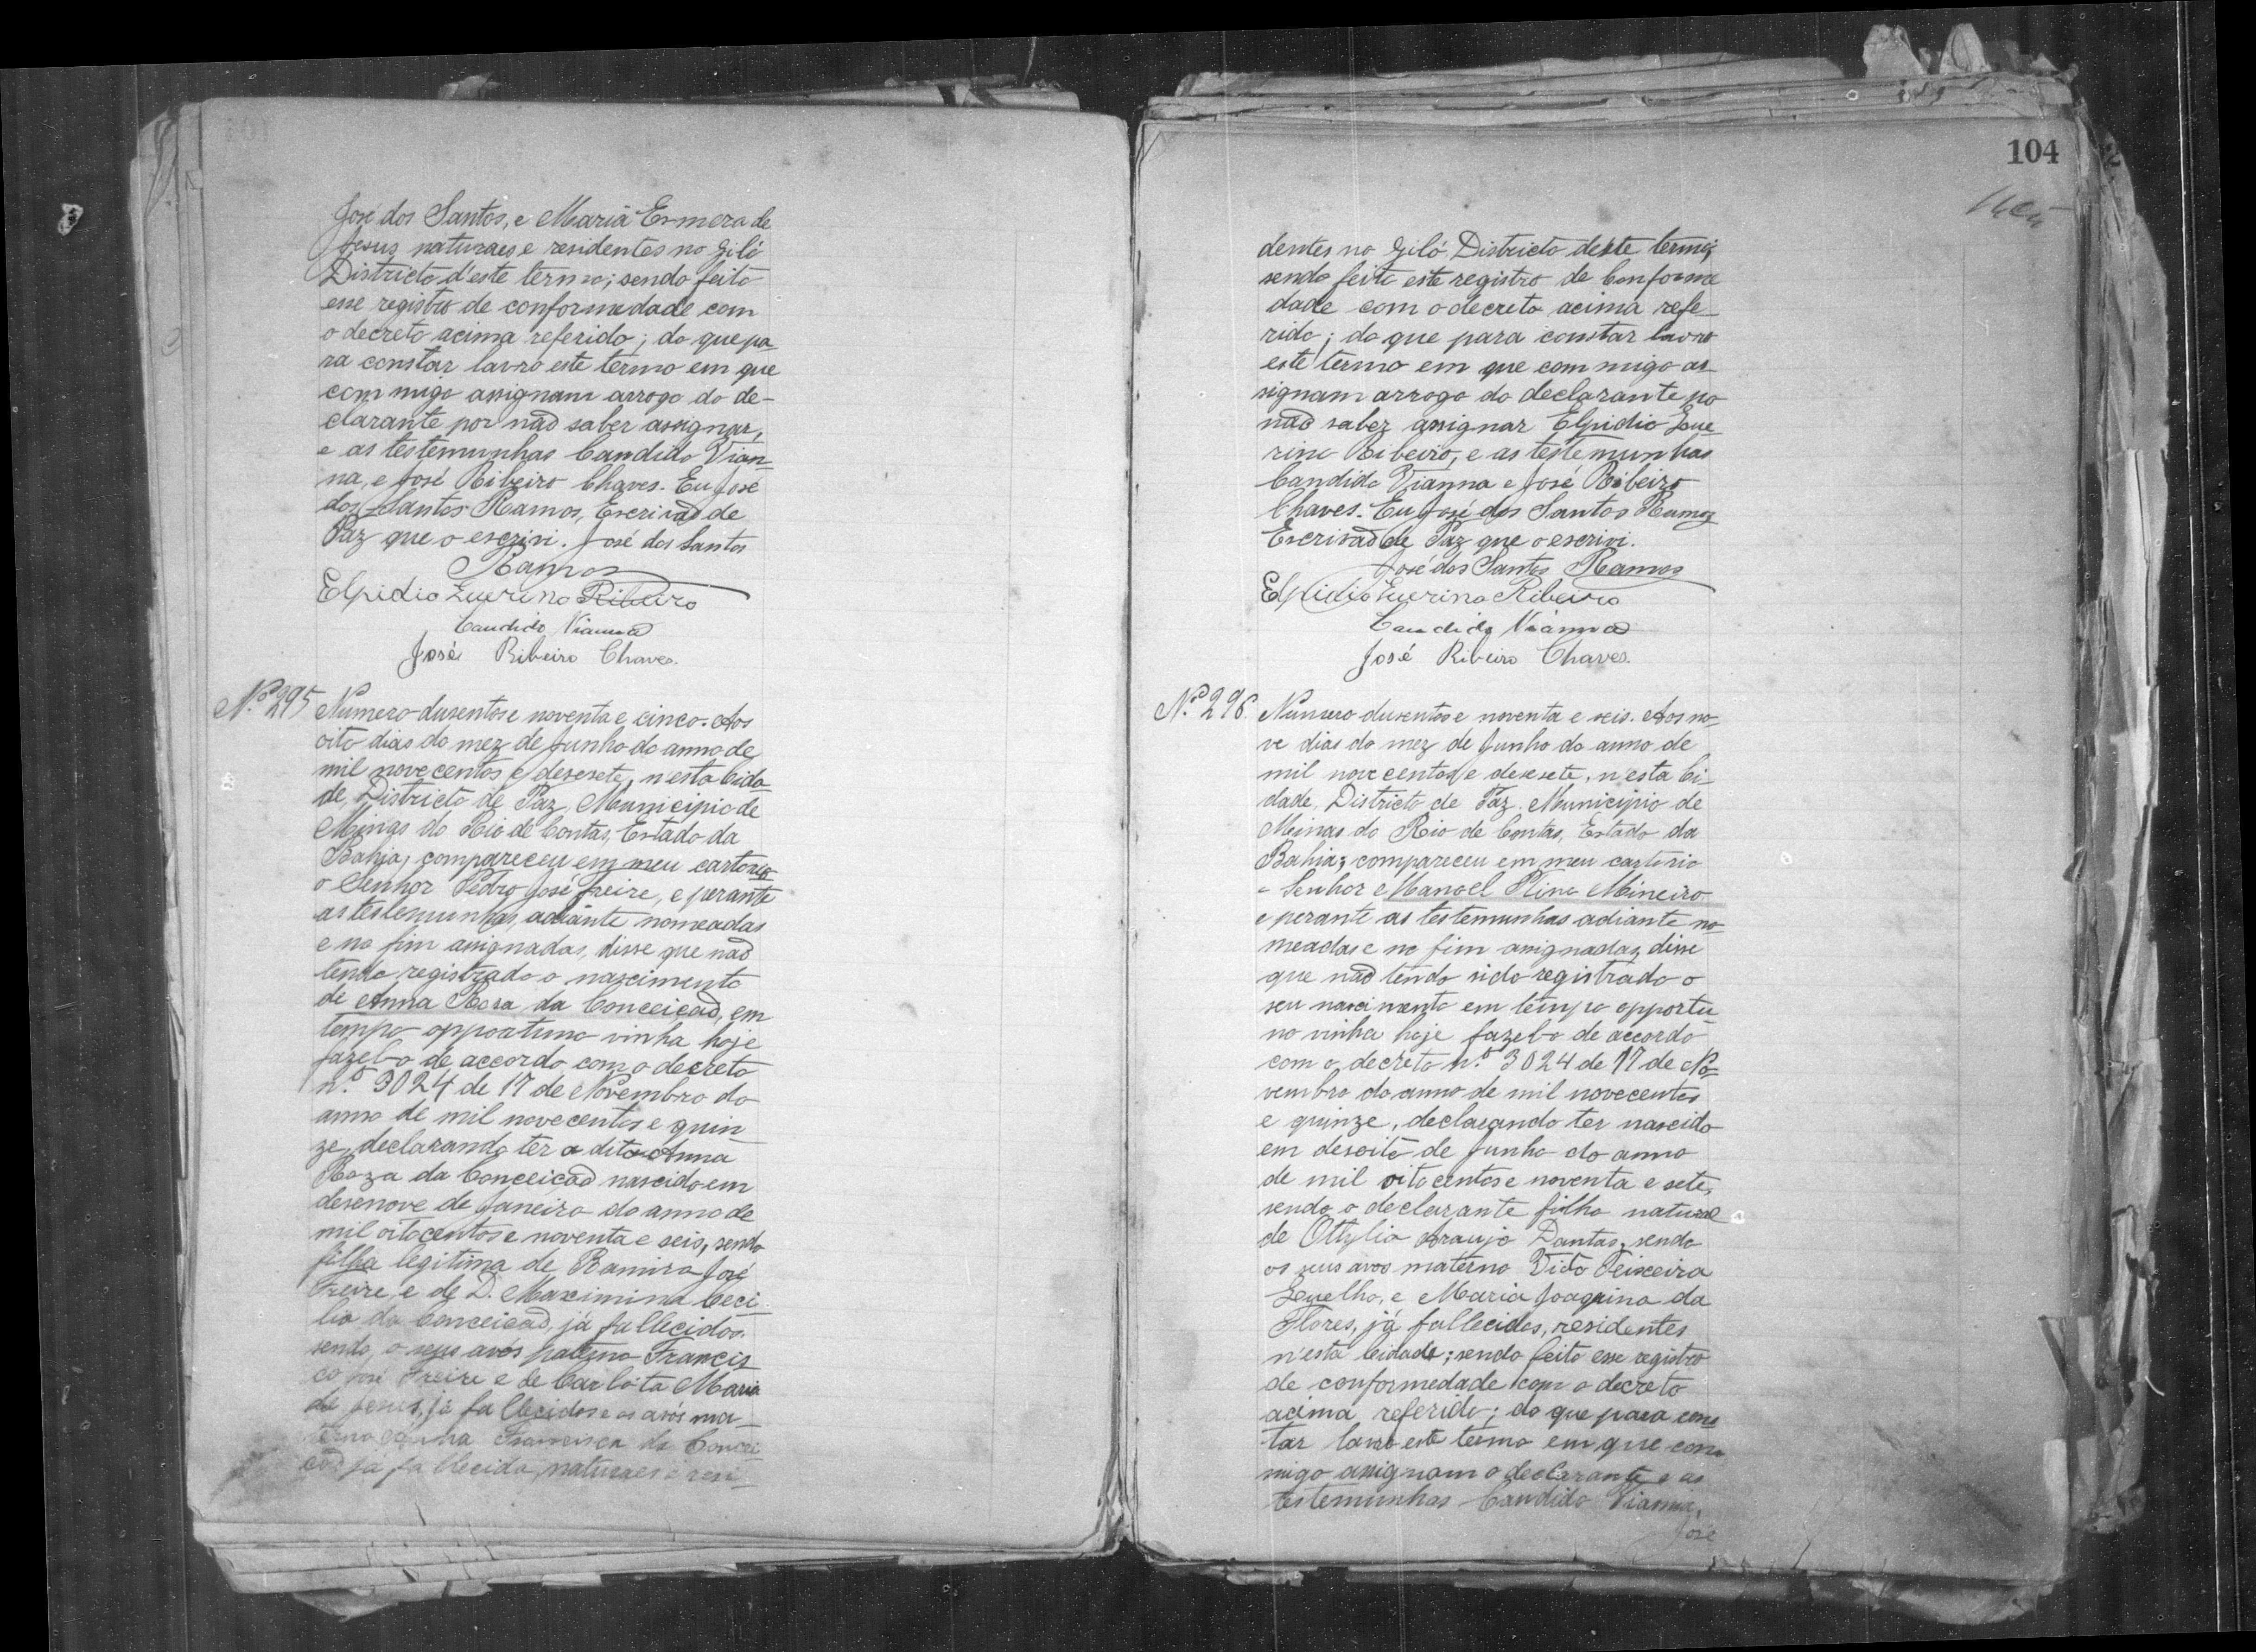 José dos Santos, e Maria Ermera de
Jesus naturaes e residentes no Giló
Districto d'este termo; sendo feito
esse registro de conformedade com
o decreto acima referido; do que pa-
ra constar lavro este termo em que
com migo assignam arrogo do de-
clarante por não saber assignar,
e as testemunhas Candido Vian-
na, e José Ribeiro Chaves. Eu José
dos Santos Ramos, Escrivaõ de
Paz que o escrivi. José dos Santos
Ramos
Elpidio Zuerino Ribeiro
Candido Vianna
José Ribeiro Chaves.
Nº 295 Numero dusentos e noventa e cinco. Aos
oito dias do mez de Junho do anno de
mil novecentos e desesete, n'esta Cida-
de, Districto de Paz, Municipio de
Minas do Rio de Contas, Estado da
Bahia, compareceu em meu cartorio
o Senhor Pedro José Freire, e perante
as testemunhas, adiante nomeadas
e no fim assignadas, disse que naõ
tendo registrado o nascimento
de Anna Rosa da Conceicaõ, em
tempo opportuno vinha hoje
fazel-o de accordo com o decreto
nº 3024 de 17 de Novembro do
anno de mil novecentos e quin-
ze, declarando ter a dita Anna
Roza da Conceicaõ nascido em
desenove de Janeiro do anno de
mil oitocentos e noventa e seis, sendo
filha legitima de Ramiro José
Freire, e de D. Maximina Ceci-
lia da Conceicaõ, já fallecidos.
sendo, o seus avós paterno Francis
co José Freire e de Carlota Maria
de Jesus, já fallecidos e os avós ma-
terno Francisca da Concei-
caõ já fallecida, naturaes e resi-
104
dentes no Giló Districto deste termo;
sendo feito este registro de Conforme
dade com o decreto acima refe-
rido; do que para constar lavro
este termo em que com migo as-
signam arrogo do declarante po
naõ sabez assignar Elpidio Zue-
rino Ribeiro, e as testemunhas
Candido Vianna e José Ribeiro
Chaves. Eu José dos Santos Ramos
Escrivaõ de Paz que o escrivi.
José dos Santos Ramos
Elpidio Zuerino Ribeiro
Candido Vianna
José Ribeiro Chaves.
Nº 296. Numero dusentos e noventa e seis. Aos no-
ve dias do mez de Junho do anno de
mil novecentos e desesete, n'esta Ci-
dade, Districto de Paz. Municipio de
Minas do Rio de Contas, Estado da
Bahia; compareceu em meu cartorio
o Senhor Manoel Plino Mineiro
e perante as testemunhas adiante no-
meadas e no fim assignadas, disse
que naõ tendo sido registrado o
seu nascimento em tempo opportu-
no vinha hoje fazel-o de accordo
com o decreto nº 3024 de 17 de No-
vembro do anno de mil novecentos
e quinze, declarando ter nascido
em desoito de Junho do anno
de mil oitocentos e noventa e sete,
sendo o declarante filho natural
de Ottylia Araujo Dantas, sendo
os seus avos materno Vido Teixeira
Zuelho, e Maria Joaquina da
Flores, já fallecidos, residentes
n'esta Cidade; sendo feito esse registro
de conformedade com o decreto
acima referido; do que para cons
tar lavro este termo em que com
migo assignam o declarante e as
testemunhas Candido Vianna,
José